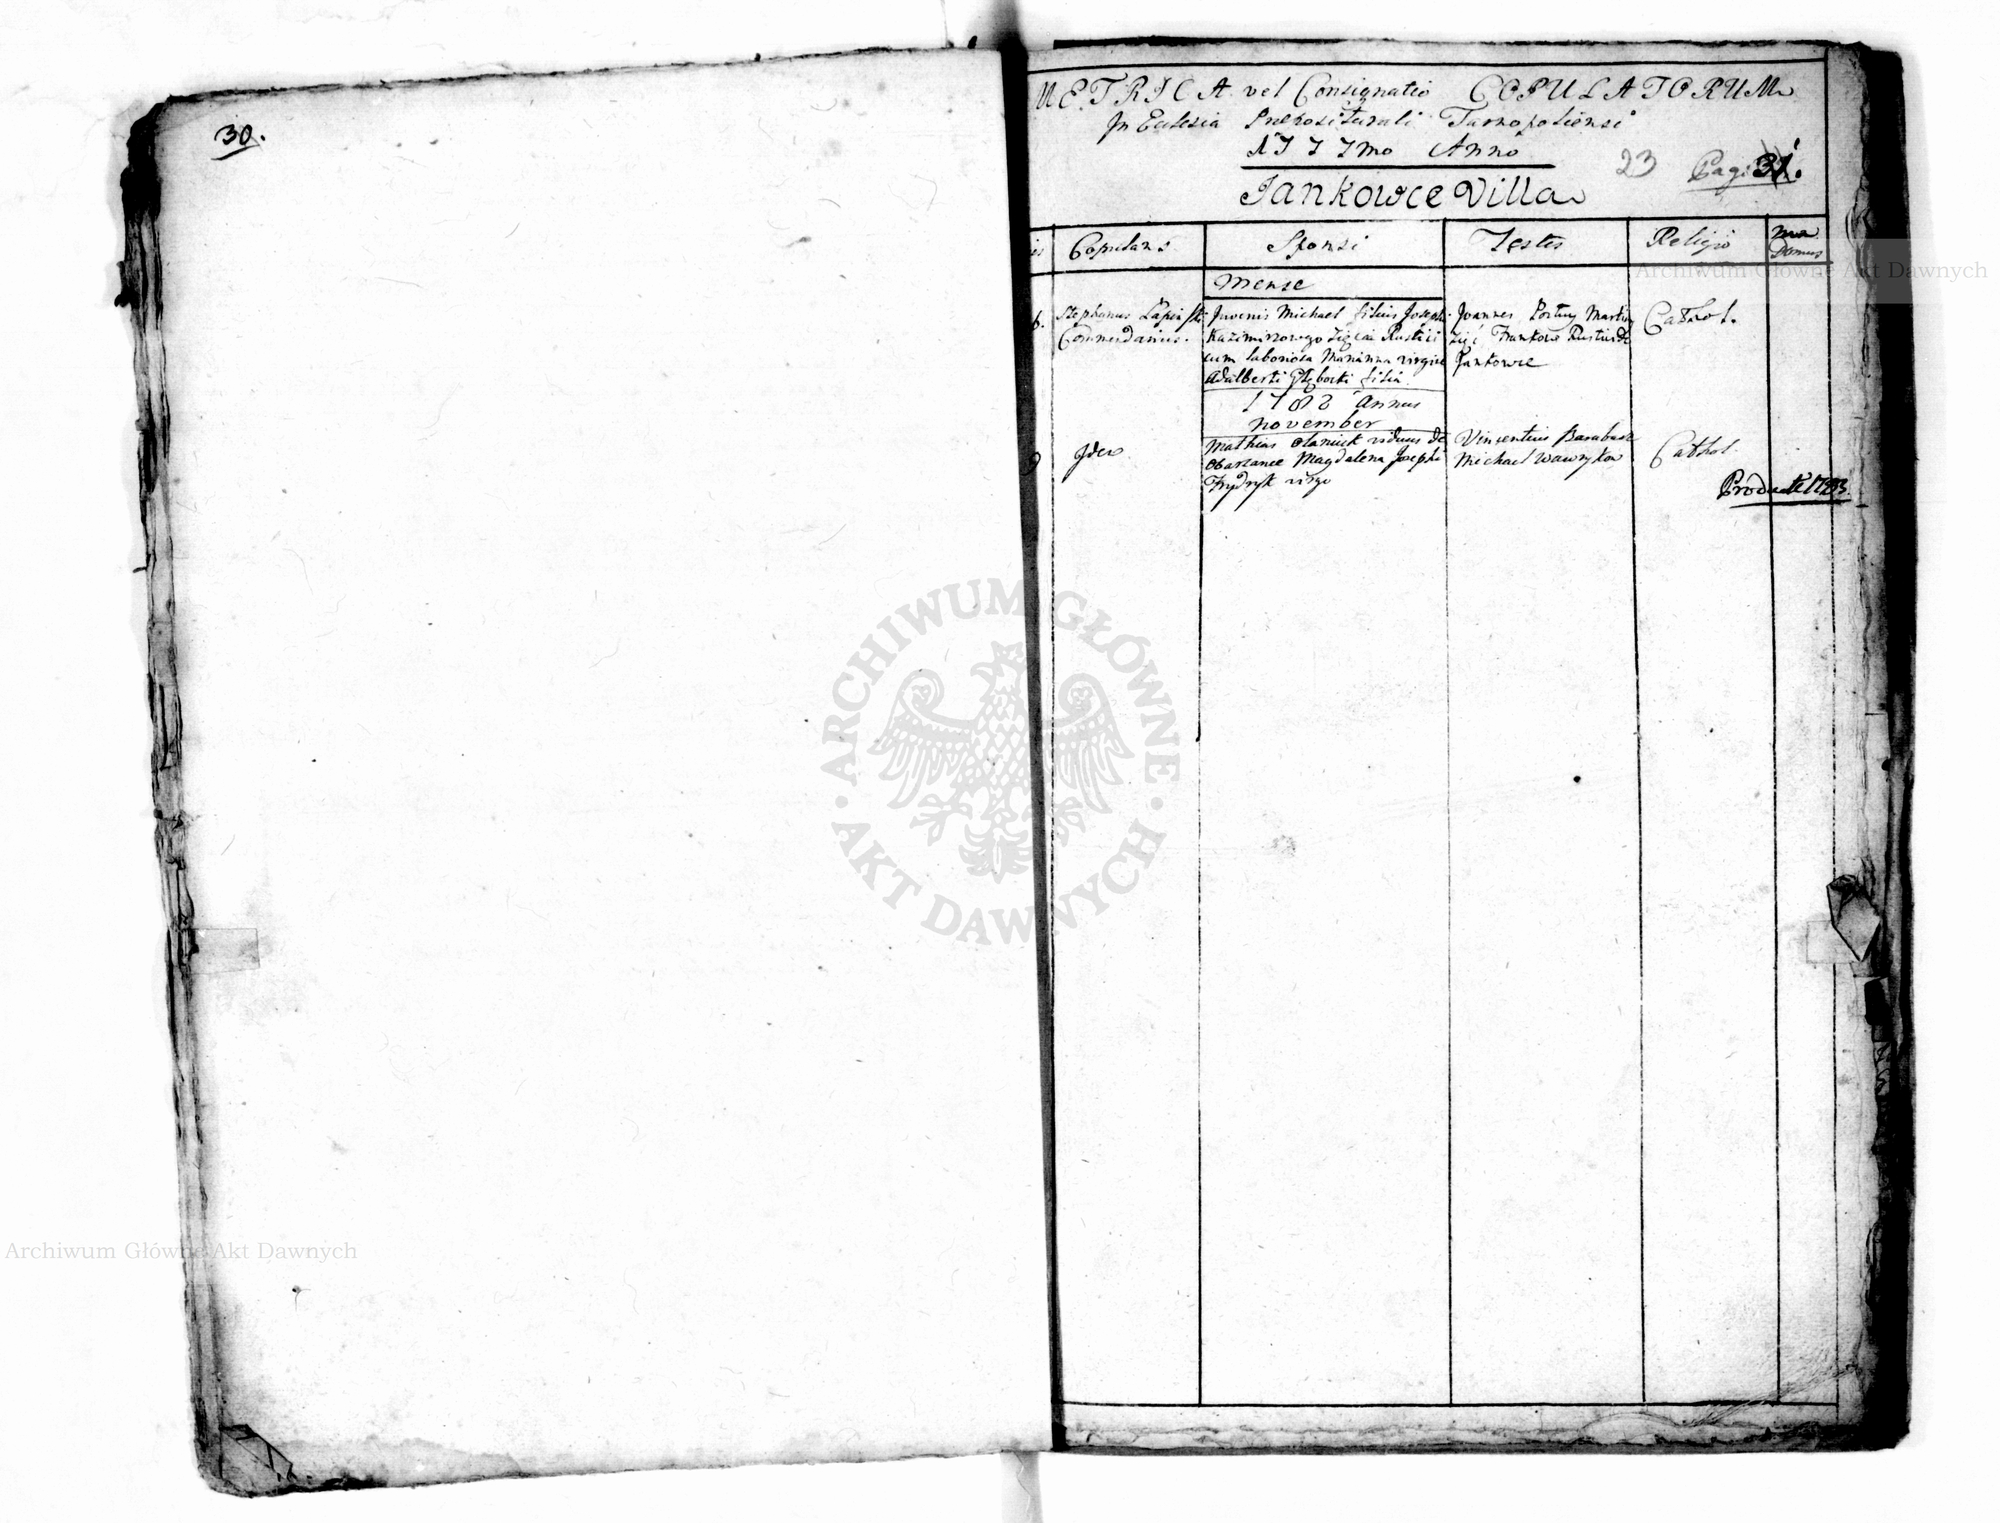 30.
METRICA vel Consignatio COPULATORUM
In Eclesia Prepositurali Tarnopoliensi
1777mo Anno
23 Pag: 31.
Jankowce Villa
Copulans Sponsi Testes Religio Nrus Domus
Mense
6. Stephanus Łapiński Commendarius.
Juvenis Michael filius Josephi
Kazimirowego Zięcia Rustici
cum laboriosa Marianna virgine
Adalberti Głębocki filia
Joannes Martin
Zięć Frankow Rusticus de
Jankowce
Cathol.
1783 Annus
November
9 Idem
Mathias viduus de
Obarzance Magdalena Josephi
Frydryk virgo
Vinsentius Barabasz
Michael Wawrykow
Cathol
Producte 1783.
ARCHIWUM GŁÓWNE AKT DAWNYCH
Archiwum Główne Akt Dawnych
Archiwum Główne Akt Dawnych